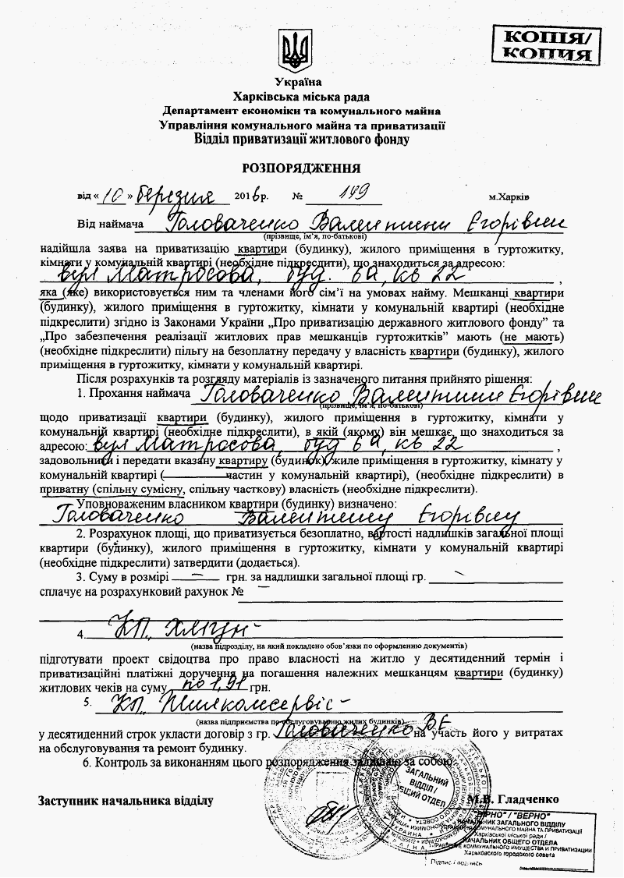 КОПІЯ/
КОПИЯ
Україна
Харківська міська рада
Департамент економіки та комунального майна
Управління комунального майна та приватизації
Відділ приватизації житлового фонду
РОЗПОРЯДЖЕННЯ
від « 10 » березня 2016 р. № 149 м.Харків
Від наймача Головаченко Валентини Єгорівни
(прізвище, ім’я, по-батькові)
надійшла заява на приватизацію квартири (будинку), жилого приміщення в гуртожитку,
кімнати у комунальній квартирі (необхідне підкреслити), що знаходиться за адресою:
вул Матросова, буд. 6а, кв 22 ,
яка (яке) використовується ним та членами його сім’ї на умовах найму. Мешканці квартири
(будинку), жилого приміщення в гуртожитку, кімнати у комунальній квартирі (необхідне
підкреслити) згідно із Законами України „Про приватизацію державного житлового фонду” та
„Про забезпечення реалізації житлових прав мешканців гуртожитків” мають (не мають)
(необхідне підкреслити) пільгу на безоплатну передачу у власність квартири (будинку), жилого
приміщення в гуртожитку, кімнати у комунальній квартирі.
Після розрахунків та розгляду матеріалів із зазначеного питання прийнято рішення:
1. Прохання наймача Головаченко Валентини Єгорівни
(прізвище, ім’я, по-батькові)
щодо приватизації квартири (будинку), жилого приміщення в гуртожитку, кімнати у
комунальній квартирі (необхідне підкреслити), в якій (якому) він мешкає, що знаходиться за
адресою: вул Матросова, буд 6а, кв 22 ,
задовольнити і передати вказану квартиру (будинок) жиле приміщення в гуртожитку, кімнату у
комунальній квартирі ( частин у комунальній квартирі), (необхідне підкреслити) в
приватну (спільну сумісну, спільну часткову) власність (необхідне підкреслити).
Уповноваженим власником квартири (будинку) визначено:
Головаченко Валентину Єгорівну
2. Розрахунок площі, що приватизується безоплатно, вартості надлишків загальної площі
квартири (будинку), жилого приміщення в гуртожитку, кімнати у комунальній квартирі
(необхідне підкреслити) затвердити (додається).
3. Суму в розмірі — грн. за надлишки загальної площі гр.
сплачує на розрахунковий рахунок №
4. КП
(назва підрозділу, на який покладено обов’язки по оформленню документів)
підготувати проект свідоцтва про право власності на житло у десятиденний термін і
приватизаційні платіжні доручення на погашення належних мешканцям квартири (будинку)
житлових чеків на суму по 1,91 грн.
5. КП Жилкомсервіс
(назва підприємства по обслуговуванню жилих будинків)
у десятиденний строк укласти договір з гр. Головаченко В.Є на участь його у витратах
на обслуговування та ремонт будинку.
6. Контроль за виконанням цього розпорядження залишаю за собою.
ЗАГАЛЬНИЙ
ВІДДІЛ /
ОБЩИЙ ОТДЕЛ
Заступник начальника відділу М.В. Гладченко
"ВІРНО" / "ВЕРНО"
НАЧАЛЬНИК ЗАГАЛЬНОГО ВІДДІЛУ
КОМУНАЛЬНОГО МАЙНА ТА ПРИВАТИЗАЦІЇ
Харківської міської ради /
НАЧАЛЬНИК ОБЩЕГО ОТДЕЛА
КОММУНАЛЬНОГО ИМУЩЕСТВА И ПРИВАТИЗАЦИИ
Харьковского городского совета
Підпис / подпись